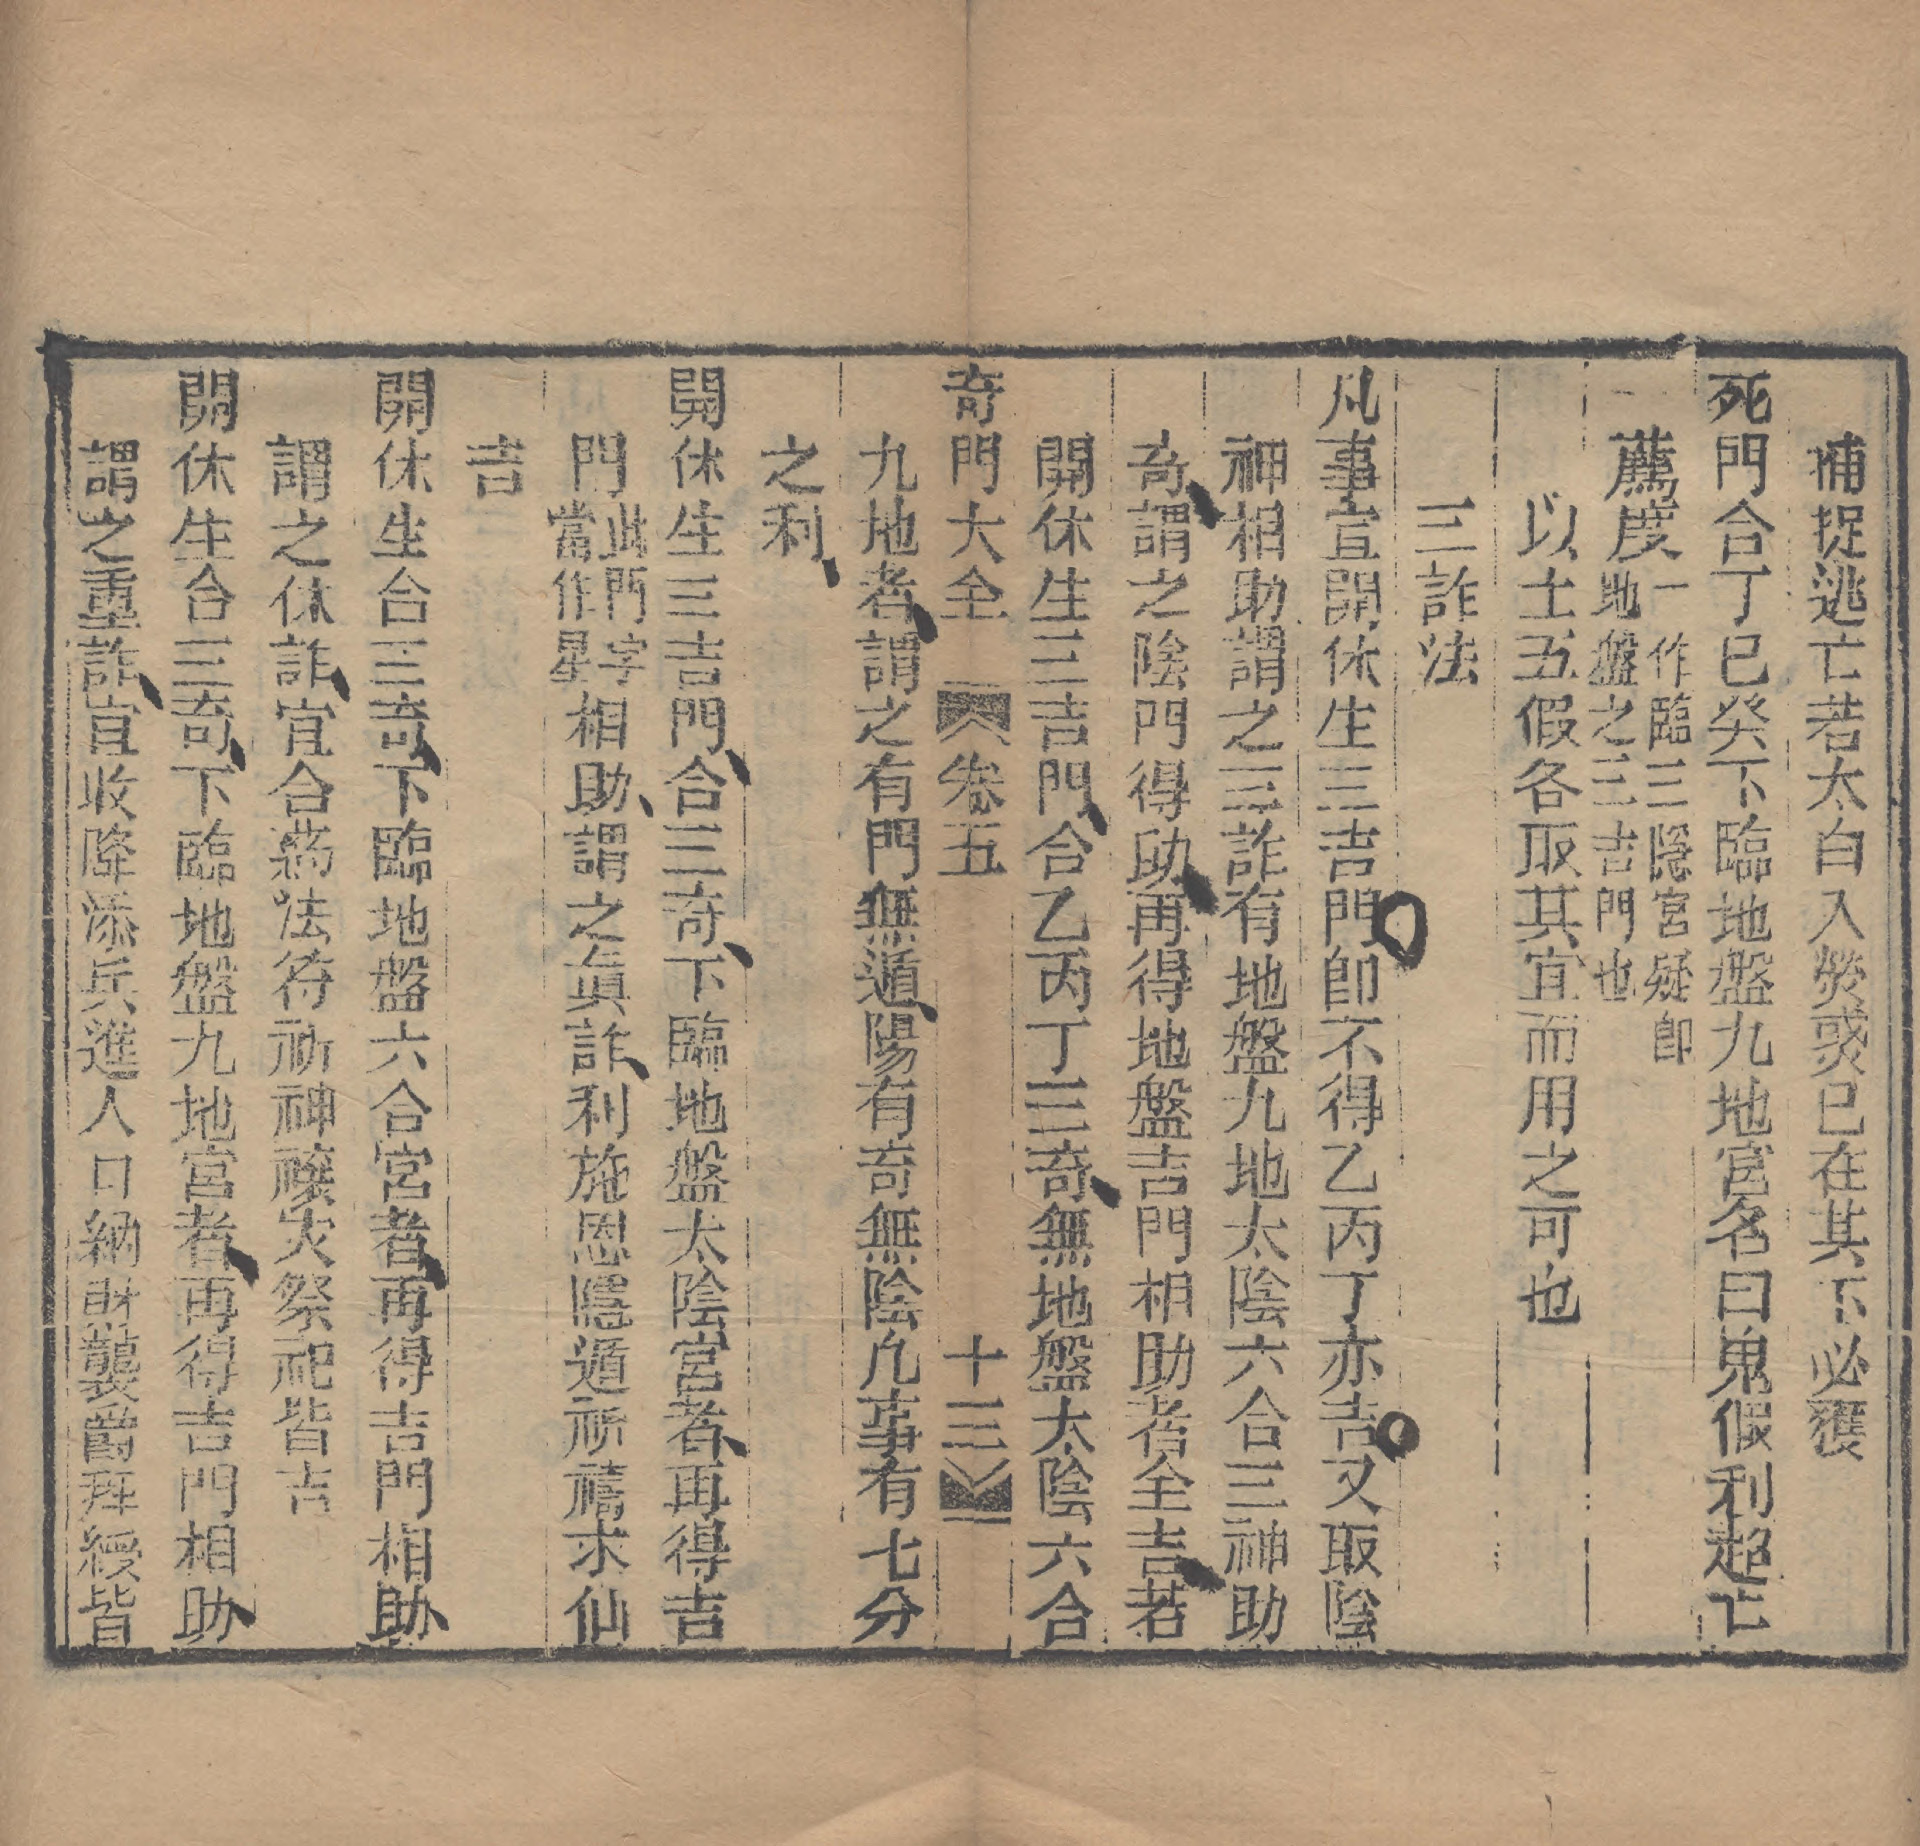 捕捉逃亡若太白入熒惑已在其下必獲
死門合丁巳癸下臨地盤九地宮名曰鬼假利超亡
薦度一作臨三隱宮疑卽地盤之三吉門也
以土五假各取其宜而用之可也
三詐法
凡事宜開休生三吉門卽不得乙丙丁亦吉又取陰
神相助謂之三詐有地盤九地太陰六合三神助
奇謂之陰門得助再得地盤吉門相助者全吉若
開休生三吉門合乙丙丁三奇無地盤太陰六合
奇門大全 卷五 十三
九地者謂之有門無遁陽有奇無陰凡事有七分
之利
開休生三吉門合三奇下臨地盤太陰宮者再得吉
門此門字當作星相助謂之眞詐利施恩隱遁祈禱求仙
吉
開休生合三奇下臨地盤六合宮者再得吉門相助
謂之休詐宜合藥法符祈神禳灾祭祀皆吉
開休生合三奇下臨地盤九地宮者再得吉門相助
謂之重詐宜收降添兵進人口納財襲爵拜綬皆